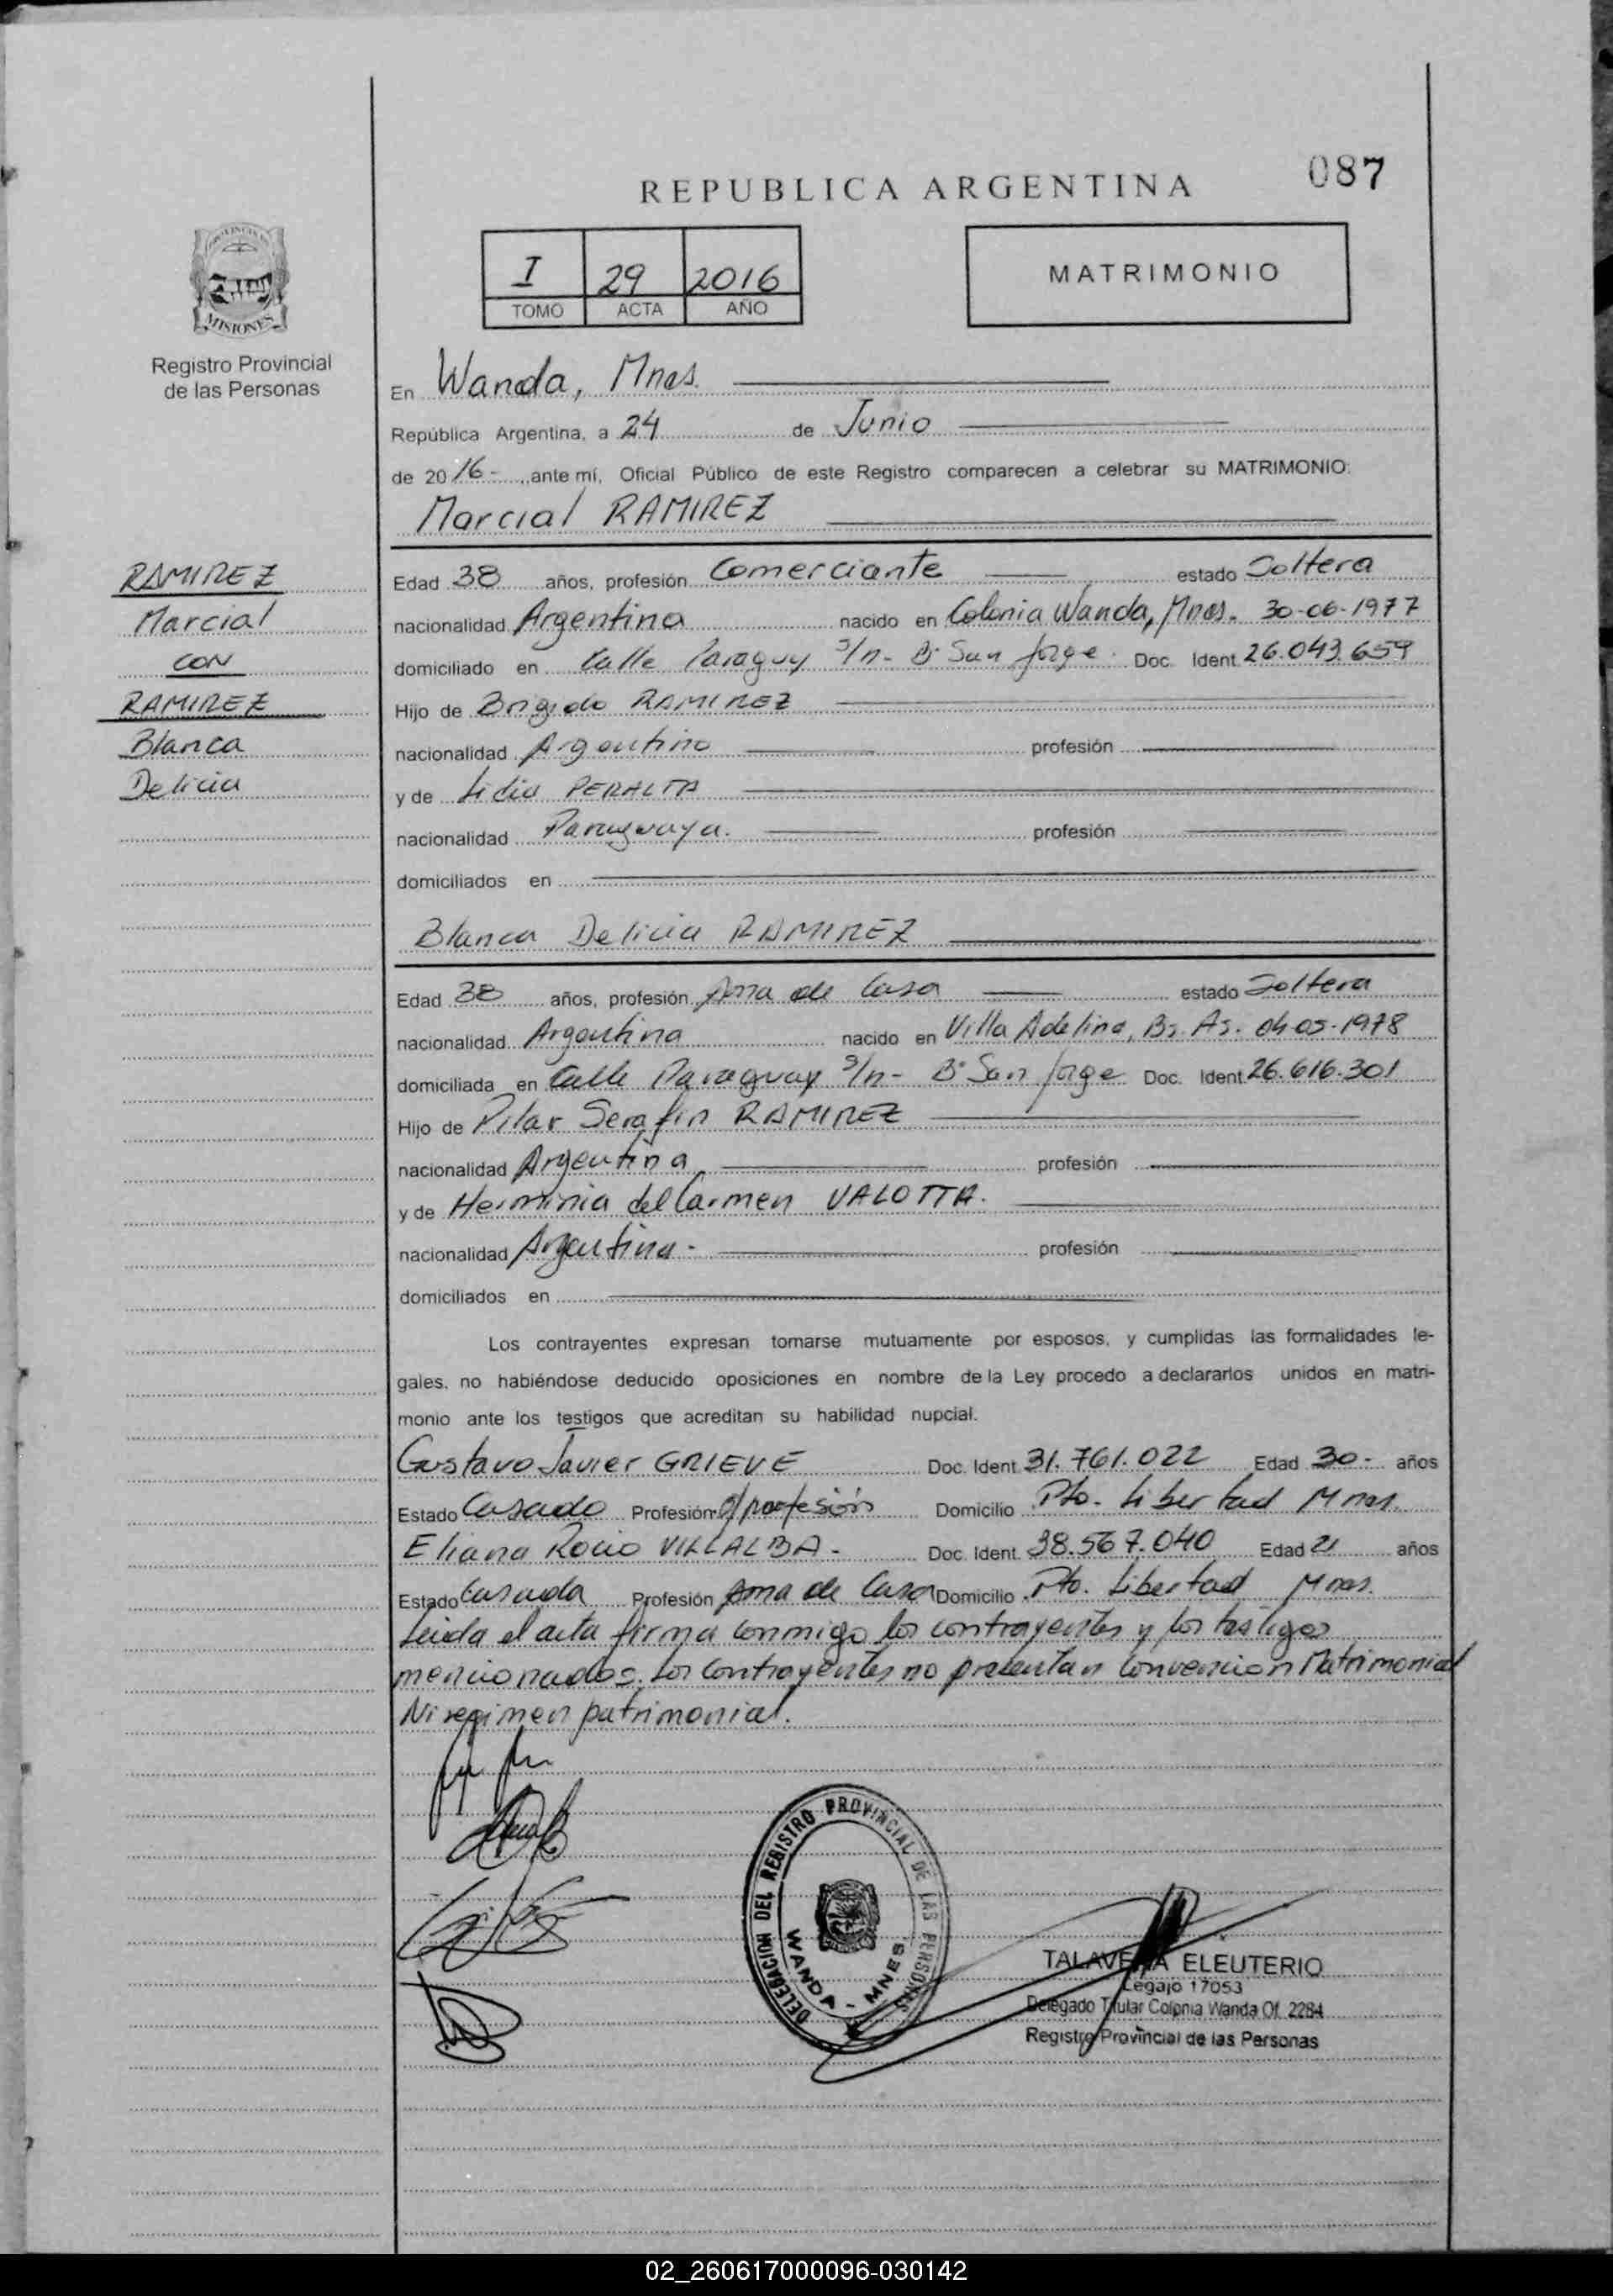 087
REPUBLICA ARGENTINA
I 29 2016
TOMO ACTA AÑO
MATRIMONIO
MISIONES
Registro Provincial
de las Personas
En Wanda, Mnes.
República Argentina, a 24 de Junio
de 2016- ante mí, Oficial Público de este Registro comparecen a celebrar su MATRIMONIO:
Marcial RAMIREZ
RAMIREZ
Marcial
CON
RAMIREZ
Blanca
Delicia
Edad 38 años, profesión Comerciante estado Soltera
nacionalidad Argentina nacido en Colonia Wanda, Mnes. 30-06-1977
domiciliado en Calle Paraguy S/n- Bº San Jorge. Doc. Ident. 26.043.659
Hijo de Brigido RAMIREZ
nacionalidad Argentino profesión
y de Lidia PERALTA
nacionalidad Paraguaya. profesión
domiciliados en
Blanca Delicia RAMIREZ
Edad 38 años, profesión Ama de Casa estado Soltera
nacionalidad Argentina nacido en Villa Adelina, Bs. As. 04-05-1978
domiciliada en Calle Paraguay S/n- Bº San Jorge Doc. Ident. 26.616.301
Hijo de Pilar Serafin RAMIREZ
nacionalidad Argentina profesión
y de Herminia del Carmen VALOTTA.
nacionalidad Argentina- profesión
domiciliados en
Los contrayentes expresan tomarse mutuamente por esposos, y cumplidas las formalidades le-
gales, no habiéndose deducido oposiciones en nombre de la Ley procedo a declararlos unidos en matri-
monio ante los testigos que acreditan su habilidad nupcial.
Gustavo Javier GRIEVE Doc. Ident. 31.761.022 Edad 30- años
Estado Casado Profesión S/profesión Domicilio Pto. Libertad Mnes.
Eliana Rocio VILLALBA- Doc. Ident. 38.567.040 Edad 21 años
Estado Casada Profesión Ama de Casa Domicilio Pto. Libertad Mnes.
Leida el acta firma conmigo los contrayentes y los testigos
mencionados. Los contrayentes no presentan Convencion Matrimonial
Ni regimen patrimonial.
DELEGACION DEL REGISTRO PROVINCIAL DE LAS PERSONAS
WANDA - MNES.
TALAVERA ELEUTERIO
Legajo 17053
Delegado Titular Colonia Wanda Of. 2284
Registro Provincial de las Personas
02_260617000096-030142